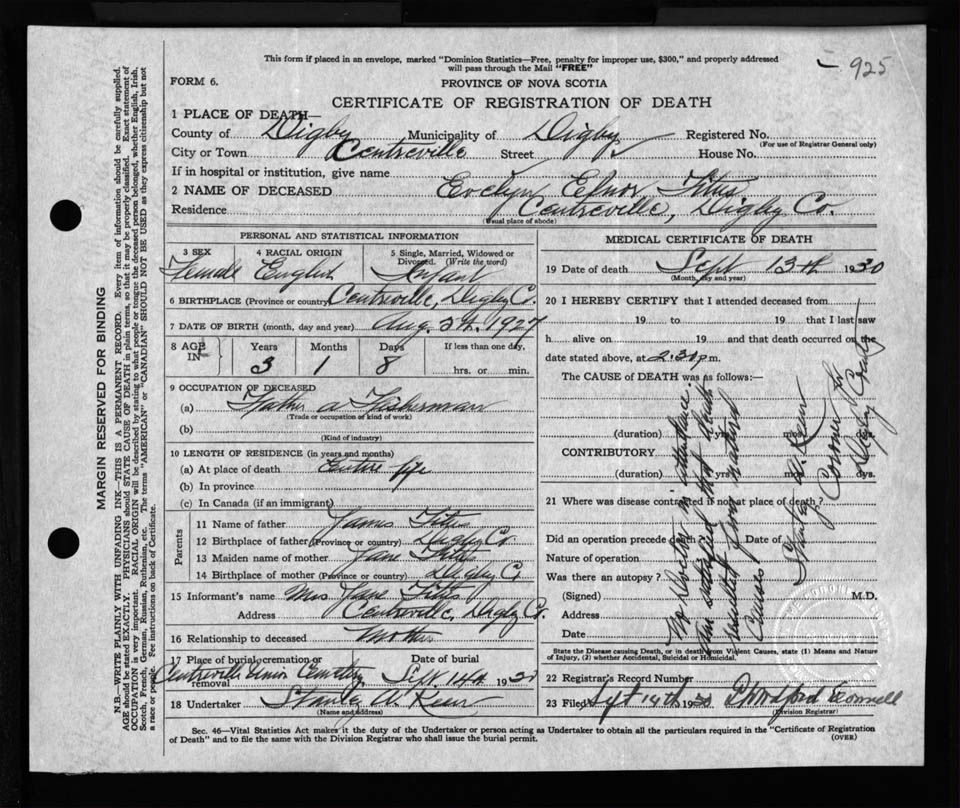 This form if placed in an envelope, marked "Dominion Statistics—Free, penalty for improper use, $300," and properly addressed
will pass through the Mail "FREE"
925
FORM 6.
PROVINCE OF NOVA SCOTIA
CERTIFICATE OF REGISTRATION OF DEATH
1 PLACE OF DEATH—
County of Digby Municipality of Digby Registered No.
(For use of Registrar General only)
City or Town Centreville Street House No.
If in hospital or institution, give name
2 NAME OF DECEASED Evelyn Elnor Titus
Residence Centreville, Digby Co.
(Usual place of abode)
PERSONAL AND STATISTICAL INFORMATION
3 SEX 4 RACIAL ORIGIN 5 Single, Married, Widowed or
Divorced. (Write the word)
Female English Infant
6 BIRTHPLACE (Province or country) Centreville, Digby Co.
7 DATE OF BIRTH (month, day and year) Aug. 5th. 1927
8 AGE IN— Years Months Days If less than one day,
3 1 8 hrs. or min.
9 OCCUPATION OF DECEASED
(a) Father a Fisherman
(Trade or occupation or kind of work)
(b)
(Kind of industry)
10 LENGTH OF RESIDENCE (in years and months)
(a) At place of death Entire life
(b) In province
(c) In Canada (if an immigrant)
Parents
11 Name of father James Titus
12 Birthplace of father (Province or country) Digby Co.
13 Maiden name of mother Jane Titus
14 Birthplace of mother (Province or country) Digby Co
15 Informant's name Mrs Jane Titus
Address Centreville, Digby Co.
16 Relationship to deceased Mother
17 Place of burial, cremation or removal Date of burial
Centreville Union Cemetery Sept. 14th 1930
18 Undertaker Stanley W. Kerr
(Name and address)
MEDICAL CERTIFICATE OF DEATH
19 Date of death Sept 13th 1930
(Month, day and year)
20 I HEREBY CERTIFY that I attended deceased from
19 to 19 that I last saw
h alive on 19 and that death occurred on the
date stated above, at 2.30 p.m.
The CAUSE of DEATH was as follows:
(duration) yrs. mos. dys.
CONTRIBUTORY
(duration) yrs. mos. dys.
21 Where was disease contracted if not at place of death?
Did an operation precede death? Date of
Nature of operation
Was there an autopsy?
(Signed) M.D.
Address
Date
No Doctor in attendance.
Am satisfied that death
resulted from natural
Causes
Stanley W. Kerr
Coroner
Digby County
State the Disease causing Death, or in death from Violent Causes, state (1) Means and Nature
of Injury, (2) whether Accidental, Suicidal or Homicidal.
22 Registrar's Record Number
23 Filed Sept 14th 1930
(Division Registrar)
Sec. 46—Vital Statistics Act makes it the duty of the Undertaker or person acting as Undertaker to obtain all the particulars required in the "Certificate of Registration
of Death" and to file the same with the Division Registrar who shall issue the burial permit.
(OVER)
MARGIN RESERVED FOR BINDING
N.B.—WRITE PLAINLY WITH UNFADING INK—THIS IS A PERMANENT RECORD. Every item of information should be carefully supplied.
AGE should be stated EXACTLY. PHYSICIANS should STATE CAUSE OF DEATH in plain terms, so that it may be properly classified. Exact statement of
OCCUPATION is very important. RACIAL ORIGIN will be described by stating to what people or tongue the deceased person belonged, whether English, Irish,
Scotch, French, German, Russian, Ruthenian, etc. The terms "AMERICAN" or "CANADIAN" SHOULD NOT BE USED as they express citizenship but not
a race or people. See instructions on back of Certificate.